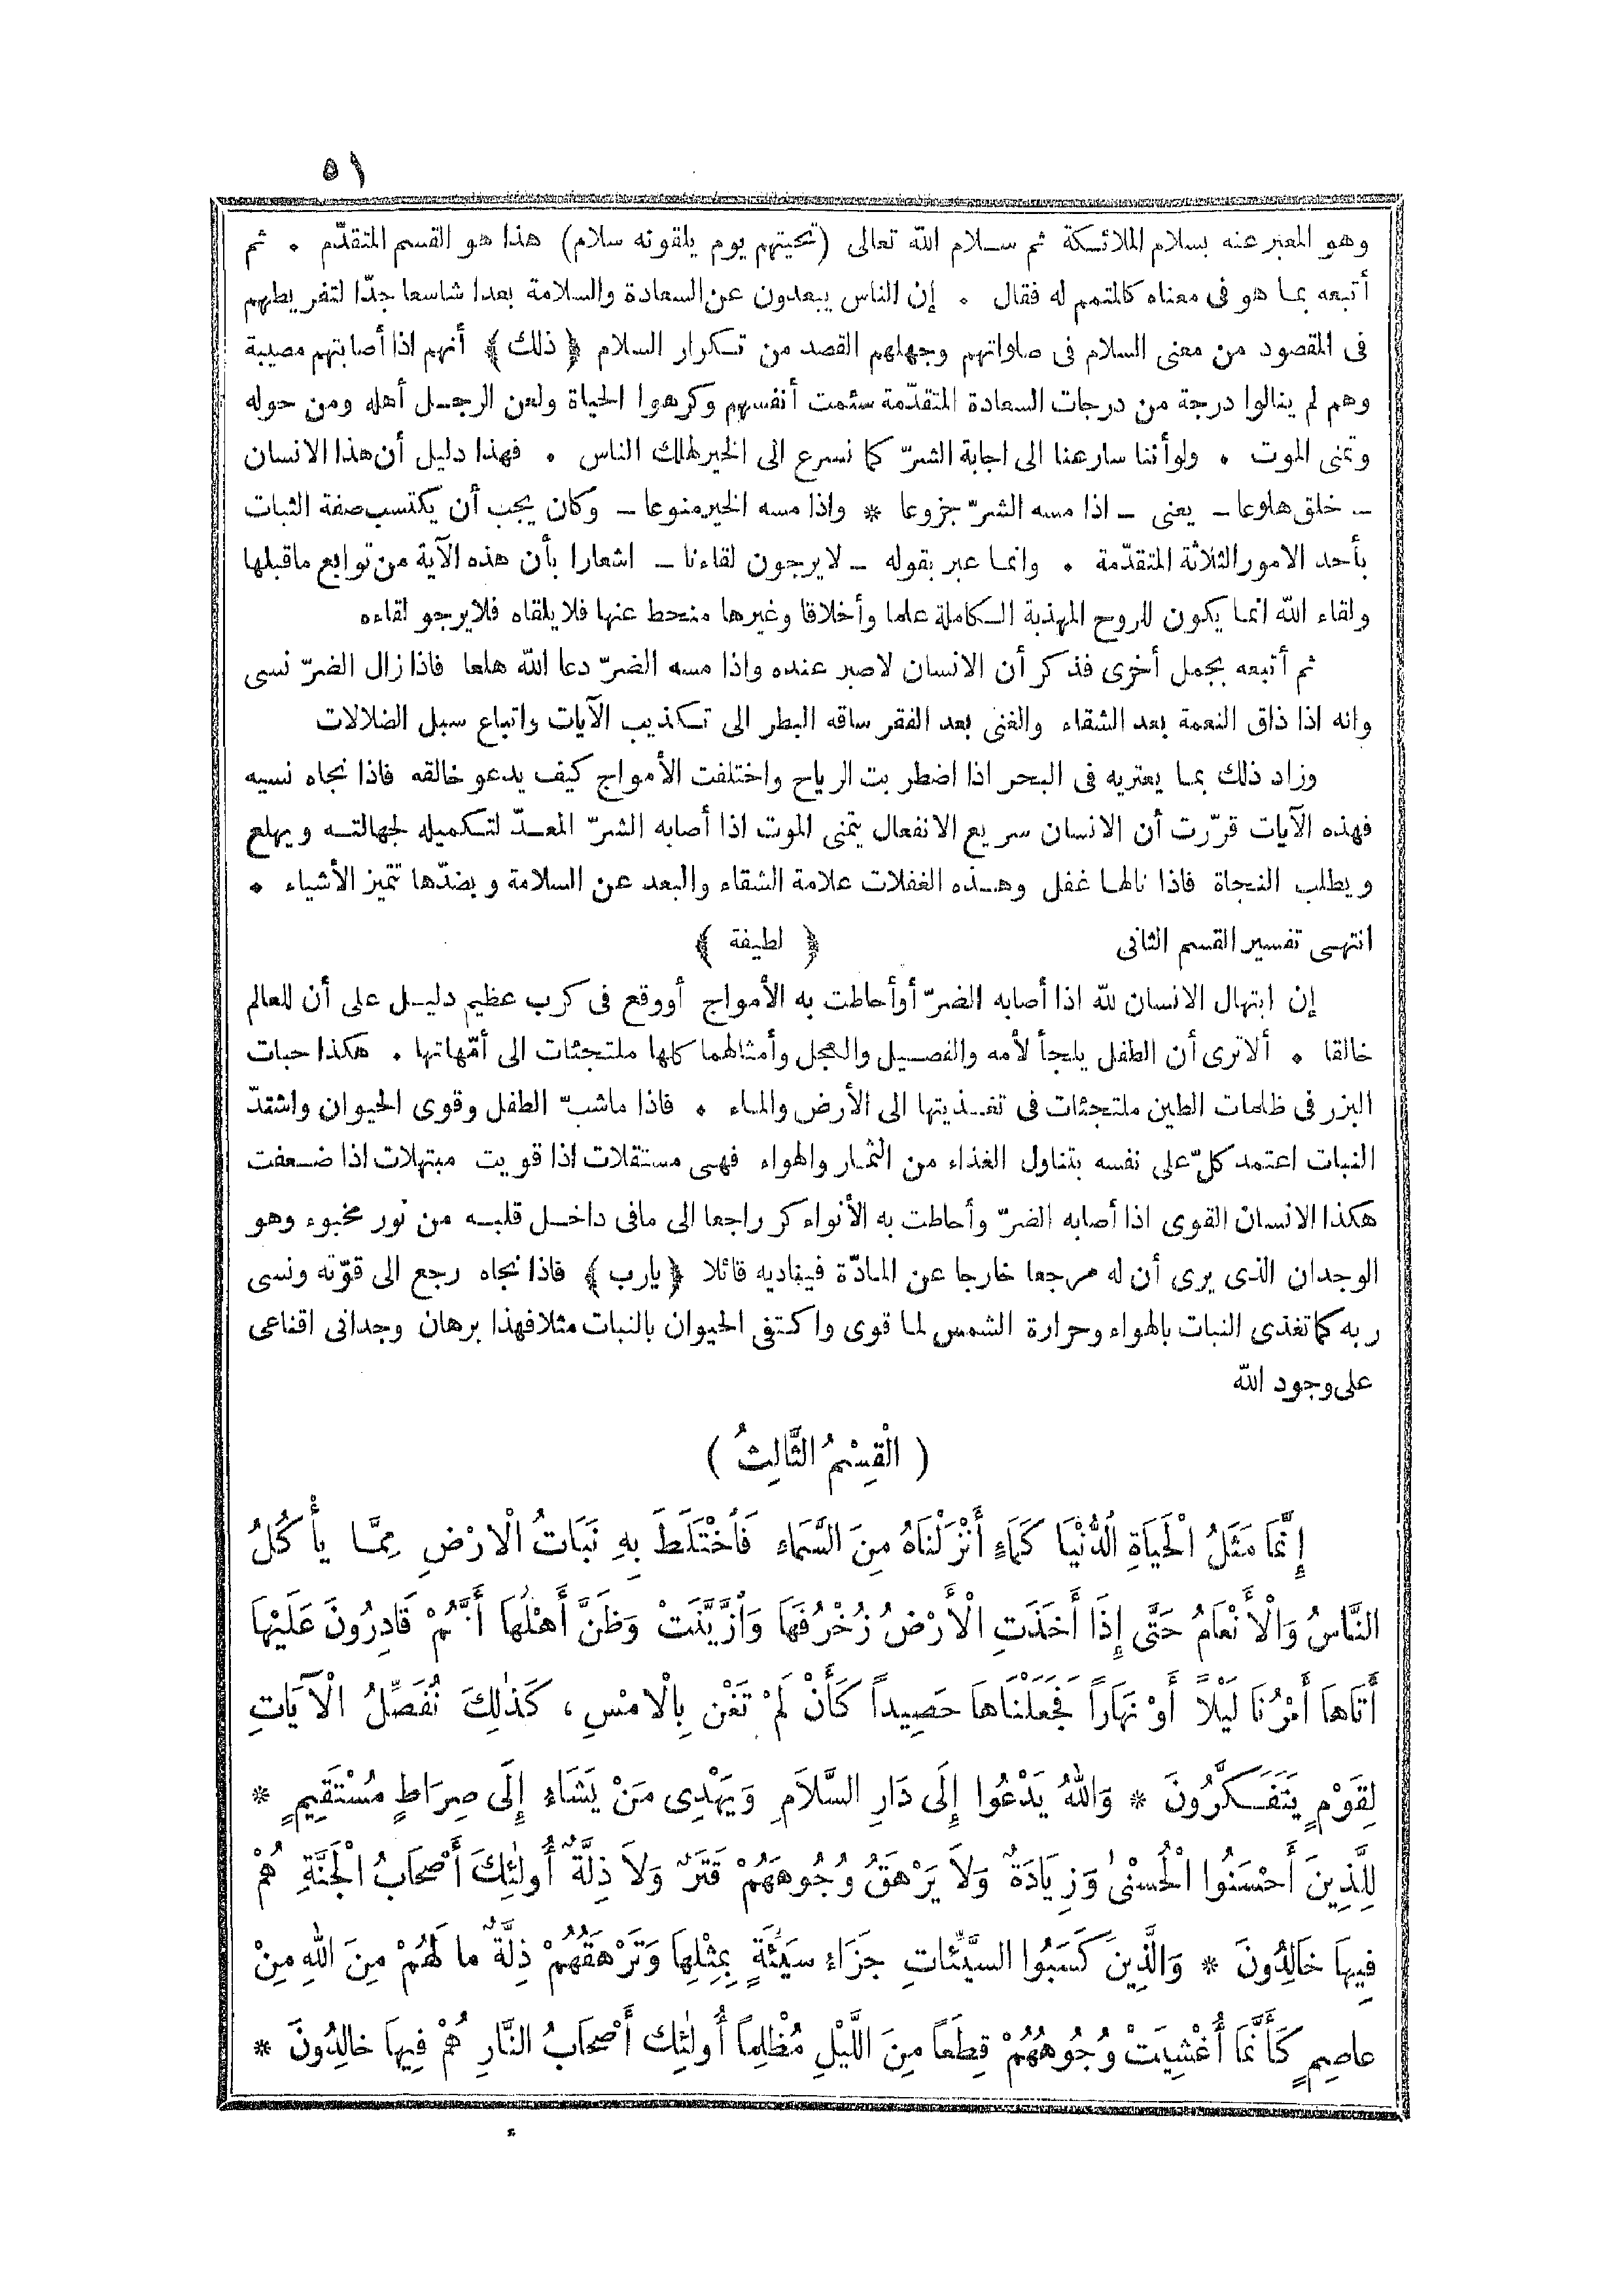 ٥١
وهو المعبر عنه بسلام الملائكة ثم سلام الله تعالى (تحيتهم يوم يلقونه سلام) هذا هو القسم المتقدّم . ثم
أتبعه بما هو فى معناه كالمتمم له فقال . إن الناس يبعدون عن السعادة والسلامة بعدا شاسعا جدّا لتفريطهم
فى المقصود من معنى السلام فى صلواتهم وجهلهم القصد من تكرار السلام ﴿ ذلك ﴾ أنهم اذا أصابتهم مصيبة
وهم لم ينالوا درجة من درجات السعادة المتقدّمة سئمت أنفسهم وكرهوا الحياة ولعن الرجل أهله ومن حوله
وتمنى الموت . ولو أننا سارعنا الى اجابة الشرّ كما نسرع الى الخير لهلك الناس . فهذا دليل أن هذا الانسان
ـ خلق هلوعا ـ يعنى ـ اذا مسه الشرّ جزوعا * واذا مسه الخير منوعا ـ وكان يجب أن يكتسب صفة الثبات
بأحد الامور الثلاثة المتقدّمة . وانما عبر بقوله ـ لايرجون لقاءنا ـ اشعارا بأن هذه الآية من توابع ماقبلها
ولقاء الله انما يكون للروح المهذبة الكاملة علما وأخلاقا وغيرها منحط عنها فلا يلقاه فلايرجو لقاءه
ثم أتبعه بجمل أخرى فذكر أن الانسان لاصبر عنده واذا مسه الضرّ دعا الله هلعا فاذا زال الضرّ نسى
وانه اذا ذاق النعمة بعد الشقاء والغنى بعد الفقر ساقه البطر الى تكذيب الآيات واتباع سبل الضلالات
وزاد ذلك بما يعتريه فى البحر اذا اضطربت الرياح واختلفت الأمواج كيف يدعو خالقه فاذا نجاه نسيه
فهذه الآيات قرّرت أن الانسان سريع الانفعال يتمنى الموت اذا أصابه الشرّ المعدّ لتكميله لجهالته ويهلع
ويطلب النجاة فاذا نالها غفل وهذه الغفلات علامة الشقاء والبعد عن السلامة وبضدّها تتميز الأشياء .
انتهى تفسير القسم الثانى ﴿ لطيفة ﴾
إن ابتهال الانسان لله اذا أصابه الضرّ أوأحاطت به الأمواج أووقع فى كرب عظيم دليل على أن للعالم
خالقا . ألاترى أن الطفل يلجأ لأمه والفصيل والعجل وأمثالهما كلها ملتجئات الى أمّهاتها . هكذا حبات
البزر فى ظلمات الطين ملتجئات فى تغذيتها الى الأرض والماء . فاذا ماشبّ الطفل وقوى الحيوان واشتدّ
النبات اعتمد كلّ على نفسه بتناول الغذاء من الثمار والهواء فهى مستقلات اذا قويت مبتهلات اذا ضعفت
هكذا الانسان القوى اذا أصابه الضرّ وأحاطت به الأنواء كر راجعا الى مافى داخل قلبه من نور مخبوء وهو
الوجدان الذى يرى أن له مرجعا خارجا عن المادّة فيناديه قائلا ﴿ يارب ﴾ فاذا نجاه رجع الى قوّته ونسى
ربه كما تغذى النبات بالهواء وحرارة الشمس لما قوى واكتفى الحيوان بالنبات مثلا فهذا برهان وجدانى اقناعى
على وجود الله
( الْقِسْمُ الثَّالِثُ )
إِنَّمَا مَثَلُ الْحَيَاةِ الدُّنْيَا كَمَاءٍ أَنْزَلْنَاهُ مِنَ السَّمَاءِ فَاخْتَلَطَ بِهِ نَبَاتُ الْارْضِ مِمَّا يأْكُلُ
النَّاسُ وَالْأَنْعَامُ حَتَّى إِذَا أَخَذَتِ الْأَرْضُ زُخْرُفَهَا وَازَّيَّنَتْ وَظَنَّ أَهْلُهَا أَنَّهُمْ قَادِرُونَ عَلَيْهَا
أَتَاهَا أَمْرُنَا لَيْلاً أَوْ نَهَاراً فَجَعَلْنَاهَا حَصِيداً كَأَنْ لَمْ تَغْنَ بِالْامْسِ ، كَذٰلِكَ نُفَصِّلُ الْآيَاتِ
لِقَوْمٍ يَتَفَكَّرُونَ * وَاللهُ يَدْعُوا إِلَى دَارِ السَّلاَمِ وَيَهْدِى مَنْ يَشَاءُ إِلَى صِرَاطٍ مُسْتَقِيمٍ *
لِلَّذِينَ أَحْسَنُوا الْحُسْنٰى وَزِيَادَةٌ وَلاَ يَرْهَقُ وُجُوهَهُمْ قَتَرٌ وَلاَ ذِلَّةٌ أُولٰئِكَ أَصْحَابُ الْجَنَّةِ هُمْ
فِيهَا خَالِدُونَ * وَالَّذِينَ كَسَبُوا السَّيِّئَاتِ جَزَاءُ سَيِّئَةٍ بِمِثْلِهَا وَتَرْهَقُهُمْ ذِلَّةٌ ما لَهُمْ مِنَ اللهِ مِنْ
عاصِمٍ كَأَنَّمَا أُغْشِيَتْ وُجُوهُهُمْ قِطَعاً مِنَ اللَّيْلِ مُظْلِماً أُولٰئِكَ أَصْحَابُ النَّارِ هُمْ فِيهَا خالِدُونَ *